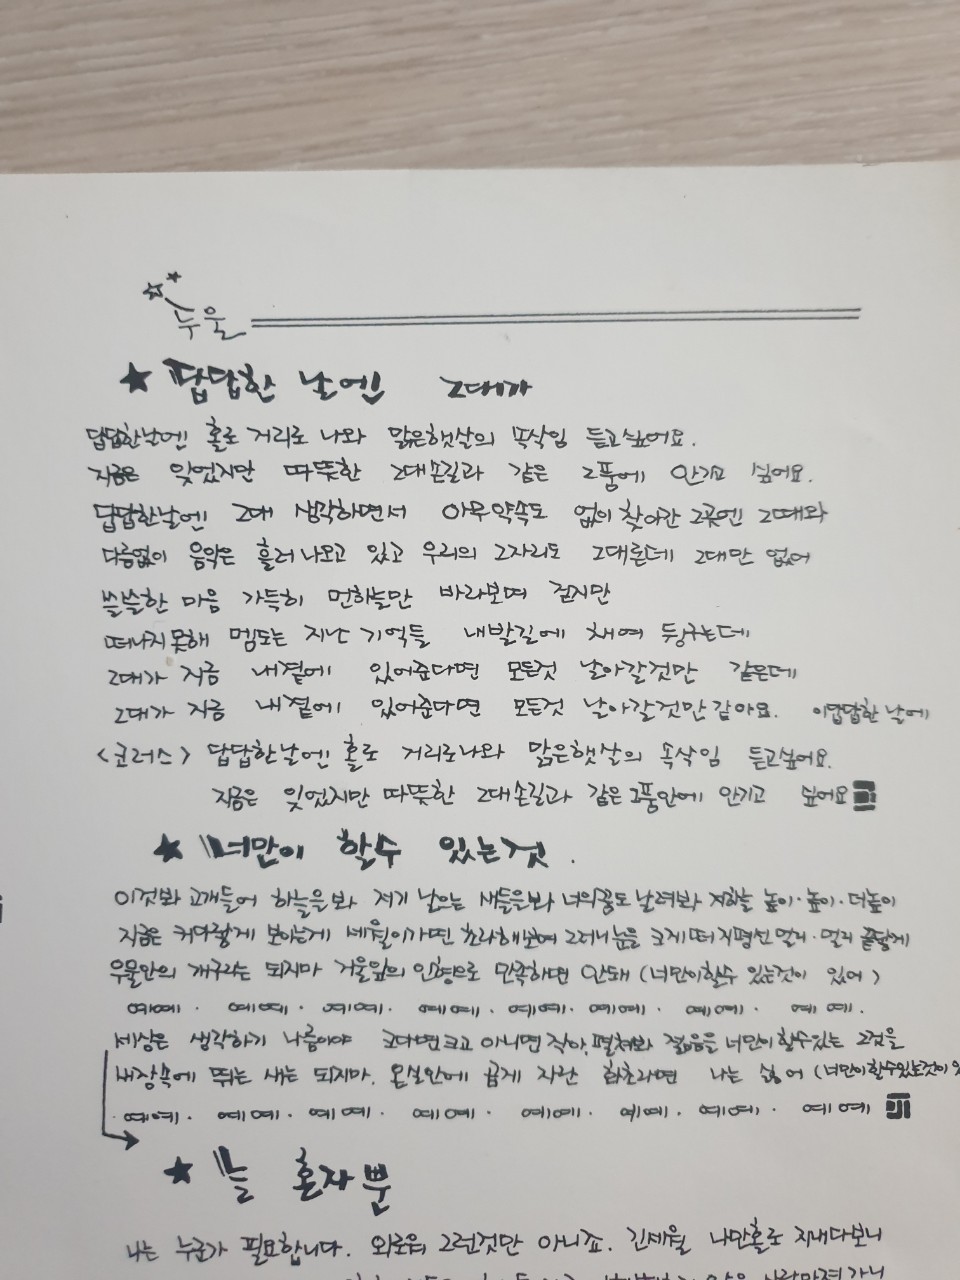 두울
★ 답답한 날엔 그대가
답답한날엔 홀로 거리로 나와 맑은햇살의 속삭임 듣고싶어요.
지금은 잊었지만 따뜻한 그대손길과 같은 그품에 안기고 싶어요.
답답한날엔 그대 생각하면서 아무약속도 없이 찾아간 그곳엔 그때와
다름없이 음악은 흘러나오고 있고 우리의 그자리도 그대론데 그대만 없어
쓸쓸한 마음 가득히 먼하늘만 바라보며 걷지만
떠나지못해 맴도는 지난 기억들 내발길에 채여 뒹구는데
그대가 지금 내곁에 있어준다면 모든것 날아갈것만 같은데
그대가 지금 내곁에 있어준다면 모든것 날아갈것만같아요. 이답답한 날에
<코러스> 답답한날엔 홀로 거리로나와 맑은햇살의 속삭임 듣고싶어요.
지금은 잊었지만 따뜻한 그대손길과 같은 그품안에 안기고 싶어요
★ 너만이 할수 있는것.
이것봐 고개들어 하늘을봐 저기 날으는 새들을봐 너의꿈도 날려봐 저하늘 높이·높이·더높이
지금은 커다랗게 보이는게 세월이가면 초라해보여 그러니 눈을 크게떠 지평선 멀리·멀리 끝닿게
우물안의 개구리는 되지마 거울앞의 인형으로 만족하면 안돼 (너만이할수 있는것이 있어)
예예· 예예· 예예· 예예· 예예· 예예· 예예· 예예.
세상은 생각하기 나름이야 크다면크고 아니면작아, 펼쳐봐 젊음을 너만이할수있는 그것을
새장속에 뛰는 새는 되지마. 온실안에 곱게 자란 화초라면 나는 싫어 (너만이할수있는것이
예예· 예예· 예예· 예예· 예예· 예예· 예예· 예예
★ 늘 혼자뿐
나는 누군가 필요합니다. 외로워 그런것만 아니죠. 긴세월 나만홀로 지내다보니